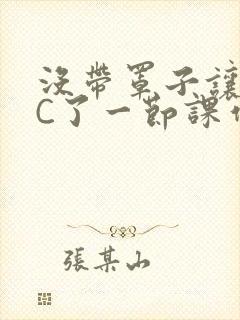 没带罩子讓
C了一節課
張某山